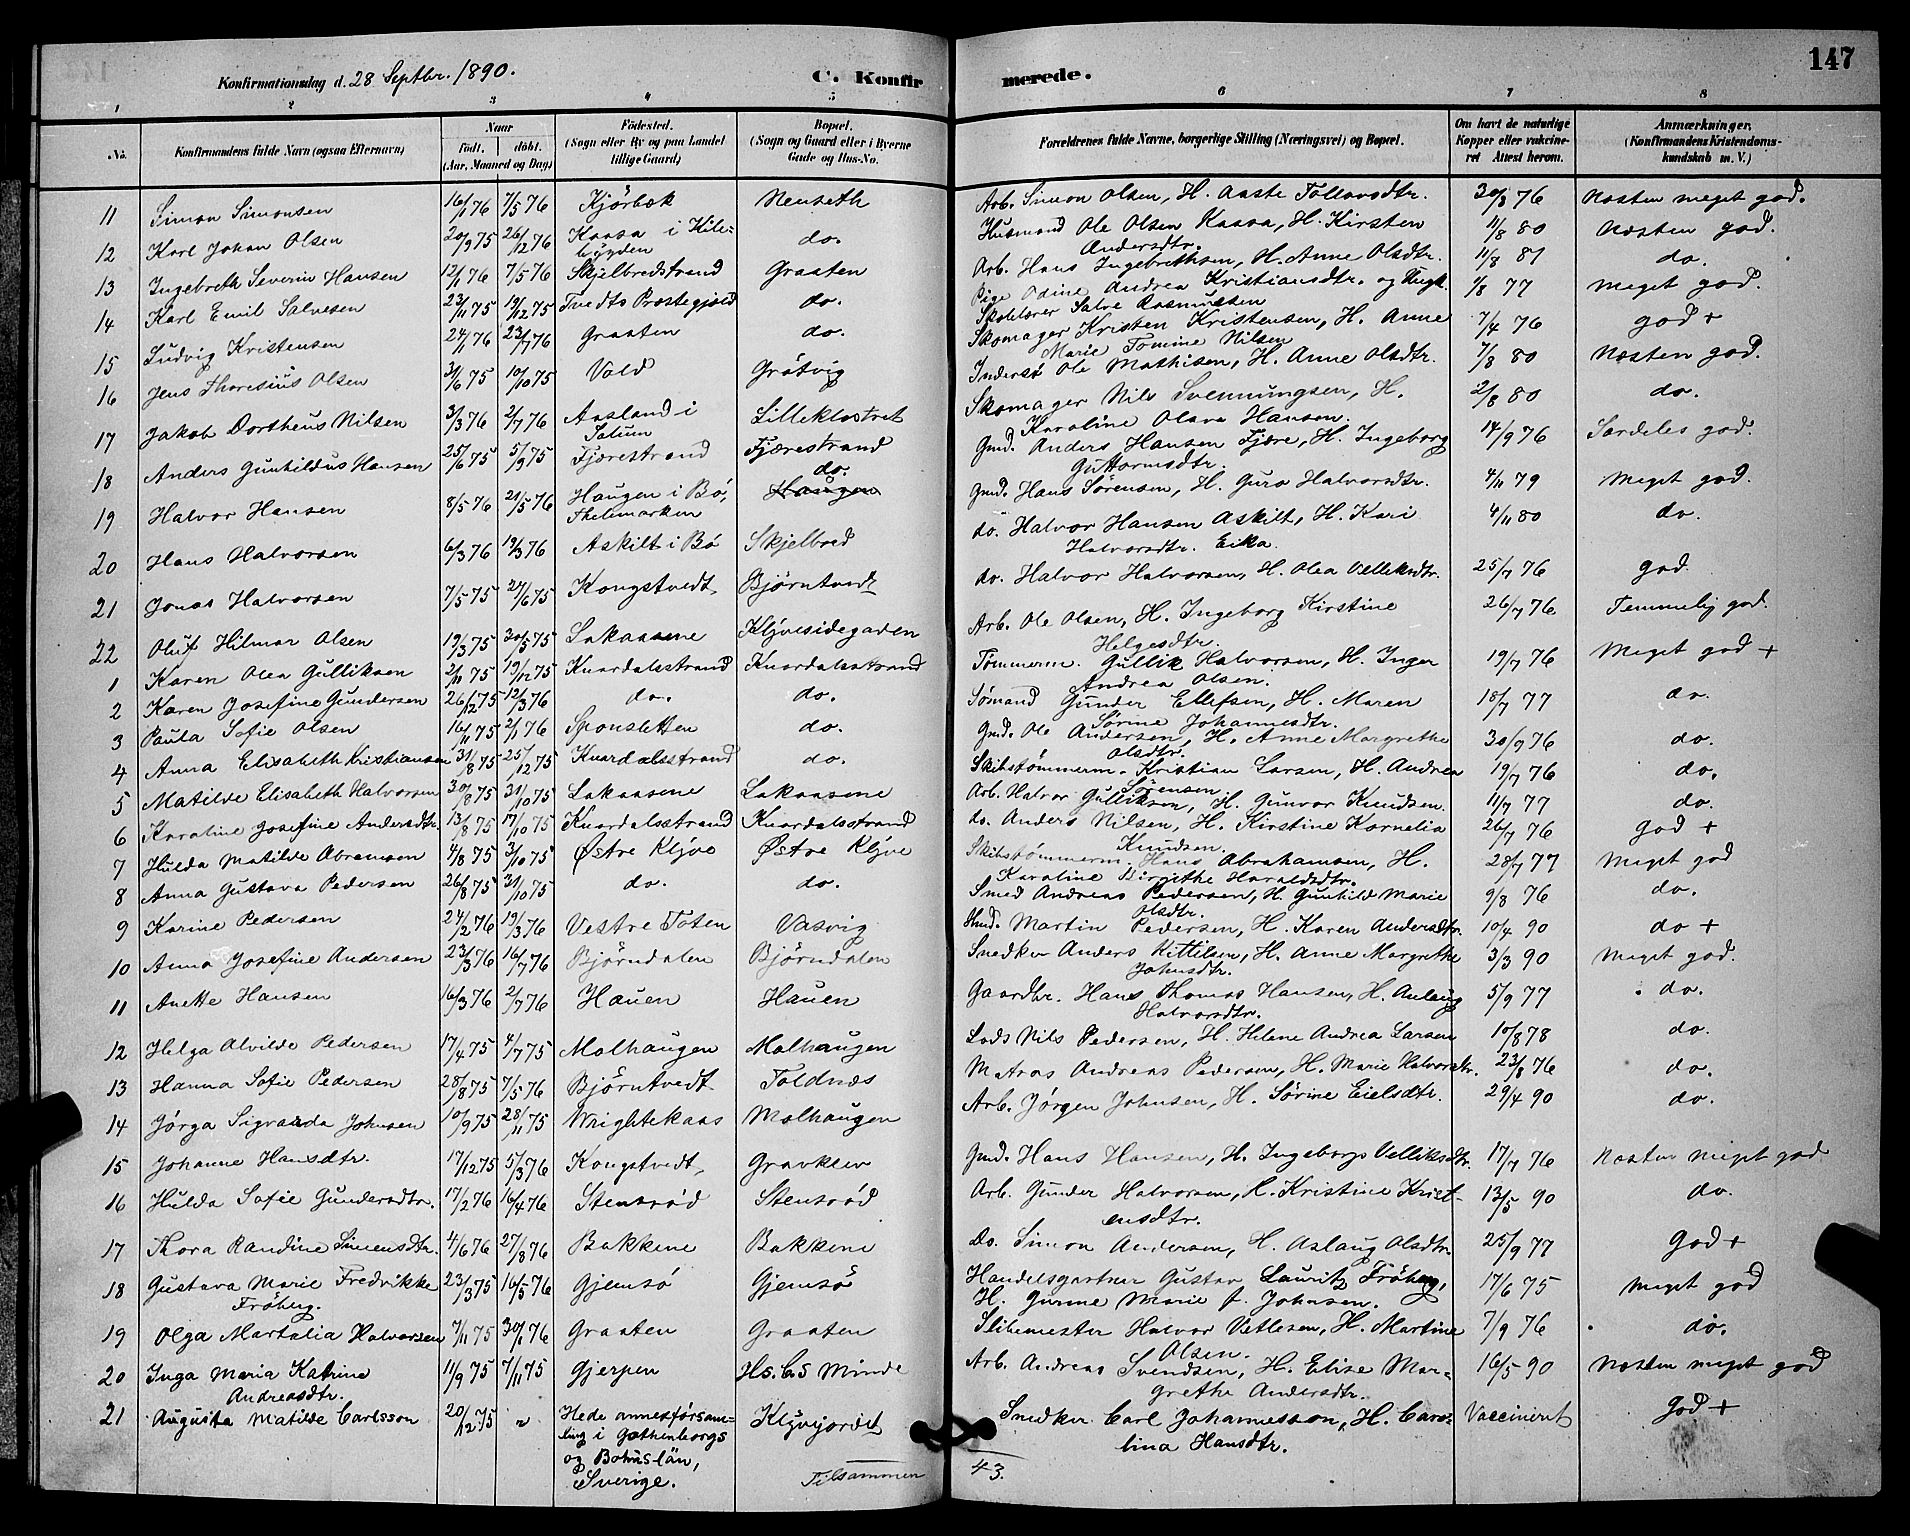 147
Konfirmationsdag d. 28 Septbr. 1890. C. Konfirmerede.
1 2 3 4 5 6 7 8
No. Konfirmandens fulde Navn (ogsaa Efternavn) Naar født. døbt. (Aar, Maaned og Dag) Fødested. (Sogn eller By og paa Landet tillige Gaard) Bopæl. (Sogn og Gaard eller i Byerne Gade og Hus-No. Forældrenes fulde Navne, borgerlige Stilling (Næringsvei) og Bopæl. Om havt de naturlige Kopper eller vakcineret Attest herom. Anmærkninger. (Konfirmandens Kristendomskundskab m. V.)
11 Simon Simonsen 16/1 76 7/5 76 Kjörbæk Menseth Arb. Simon Olsen, H. Aaste Tollevsdtr. 30/3 76 Næsten meget god.
12 Karl Johan Olsen 20/9 75 26/12 76 Kaasa i Hilebygden do. Husmand Ole Olsen Kaasa, H. Kirsten Andersdtr. 11/8 80 Næsten god.
13 Ingebreth Severin Hansen 12/1 76 7/5 76 Skjelbredstrand Graaten Arb. Hans Ingebrethsen, H. Anne Olsdtr. 11/8 81 do.
14 Karl Emil Salvesen 23/11 75 19/12 75 Tvedts Præstegjeld do. Pige Odine Andrea Kristiansdtr. og Ungk. Skolelærer Salve Rasmussen 1/8 77 Meget god.
15 Ludvig Kristensen 24/1 76 23/7 76 Graaten do. Skomager Kristen Kristensen, H. Anne Marie Tomine Nilsen 7/4 76 god +
16 Jens Thoresius Olsen 31/6 75 10/10 75 Vold Grötvig Inderst Ole Mathisen, H. Anne Olsdtr. 7/8 80 Næsten god.
17 Jakob Dortheus Nilsen 3/3 76 2/7 76 Aasland i Solum Lilleklostret Skomager Nils Svennungsen, H. Karoline Olava Hansen. 2/8 80 do.
18 Anders Gunhildus Hansen 25/6 75 5/9 75 Fjærestrand Fjærestrand Gmd. Anders Hansen Fjære, H. Ingeborg Guttormsdtr. 14/9 76 Særdeles god.
19 Halvor Hansen 8/5 76 21/5 76 Haugen i Bö, Thelemarken do. Haugen Gmd. Hans Sörensen, H. Guro Halvorsdtr. 4/11 79 Meget god.
20 Hans Halvorsen 6/3 76 19/3 76 Askilt i Bö Skjelbred do. Halvor Hansen Askilt, H. Kari Halvorsdtr. Eika 4/11 80 do.
21 Jonas Halvorsen 7/5 75 27/6 75 Kongstvedt Björntvedt do. Halvor Halvorsen, H. Olea Velleksdtr. 25/7 76 god
22 Oluf Hilmar Olsen 19/3 75 30/5 75 Lakaasene Klyvesidegaden Arb. Ole Olsen, H. Ingeborg Kirstine Helgesdtr. 26/7 76 Temmelig god.
1 Karen Olea Gulliksen 2/11 75 19/12 75 Knardalsstrand Knardalsstrand Tömmerm. Gullik Halvorsen, H. Inger Andrea Olsen. 19/7 76 Meget god +
2 Karen Josefine Gundersen 26/12 75 12/3 76 do. do. Sömand Gunder Ellefsen, H. Maren Sörine Johannesdtr. 18/7 77 do.
3 Paula Sofie Olsen 16/11 75 2/1 76 Sponsletten do. Gmd. Ole Andersen, H. Anne Margrethe Olsdtr. 30/9 76 do.
4 Anna Elisabeth Kristiansen 31/8 75 25/12 75 Knardalsstrand do. Skibstömmerm. Kristian Larsen, H. Andrea Sörensen. 19/7 76 do.
5 Matilde Elisabeth Halvorsen 30/8 75 31/10 75 Lakaasene Lakaasene Arb. Halvor Gulliksen, H. Gunvor Knudsen. 11/7 77 do.
6 Karoline Josefine Andersdtr. 13/8 75 17/10 75 Knardalsstrand Knardalsstrand do. Anders Nilsen, H. Kirstine Kornelia Knudsen. 26/7 76 God +
7 Hulda Matilde Abramsen 4/8 75 3/10 75 Østre Klyve Østre Klyve Skibstömmerm. Hans Abrahamsen, H. Karoline Birgithe Haraldsdtr. 28/7 77 Meget god
8 Anna Gustava Pedersen 26/8 75 31/10 75 do. do. Smed Andreas Pedersen, H. Gunhild Marie Olsdtr. 9/8 76 do.
9 Karine Pedersen 24/2 76 19/3 76 Vestre Toten Vasvig Martin Pedersen, H. Karen Andersdtr. 10/4 90 do +
10 Anna Josefine Andersen 23/3 76 16/7 76 Björndalen Björndalen Snedker Anders Kittilsen, H. Anne Margrethe Johnsdtr. 3/3 90 Meget god.
11 Anette Hansen 16/3 76 2/7 76 Hauen Hauen Gaardbr. Hans Thomas Hansen, H. Anlaug Halvorsdtr. 5/9 77 do.
12 Helga Alvilde Pedersen 17/4 75 4/7 75 Molhaugen Molhaugen Lods Nils Pedersen, H. Helene Andrea Larsen 10/8 78 do.
13 Hanna Sofie Pedersen 28/8 75 7/5 76 Björntvedt Toldnæs Matros Andreas Pedersen, H. Marie Halvorsdtr. 23/8 76 do.
14 Jörga Sigvarda Johnsen 10/9 75 28/11 75 Wrightekaas Molhaugen Arb. Jörgen Johnsen, H. Sörine Eielsdtr. 29/4 90 do.
15 Johanne Hansdtr. 17/12 75 5/3 76 Kongstvedt Gravklev Gmd. Hans Hansen, H. Ingeborg Velleksdtr. 17/7 76 Næsten meget god
16 Hulda Sofie Gundersdtr. 17/2 76 16/4 76 Stensröd Stensröd Arb. Gunder Halvorsen, H. Kristine Kristensdtr. 13/5 90 do.
17 Thora Randine Simensdtr. 4/6 76 27/8 76 Bakkene Bakkene Do. Simon Andersen, H. Aslaug Olsdtr. 25/9 77 God +
18 Gustava Marie Fredrikke Fröberg. 23/3 75 16/5 76 Gjemsö Gjemsö Handelsgartner Gustav Lauritz Fröberg, H. Gurine Marie f. Johnsen. 17/6 75 Meget god
19 Olga Martalia Halvorsen 7/11 75 30/1 76 Graaten Graaten Slibemester Halvor Vetlesen, H. Martine Olsen. 7/9 76 do.
20 Inga Maria Katrine Andreasdtr. 11/9 75 7/11 75 Gjerpen Hs. C.S Minde Arb. Andreas Svendsen, H. Elise Margrethe Andersdtr. 16/5 90 Næsten meget god
21 Augusta Matilde Carlsson 20/12 75 Hede annexförsamling i Gothenborgs og Bohuslän, Sverige. Klyvejordet Snedker Carl Johannesson, H. Carolina Hansdtr. Vaccineret God +
Tilsammen 43.